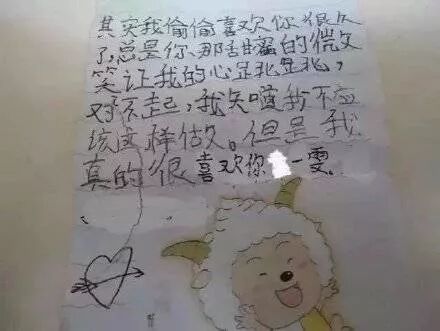 其实我偷偷喜欢你很久
了,总是你那甜蜜的微
笑让我的心走死走死,
对不起,我知道我不应
该这样做。但是我
真的很喜欢你 一雯